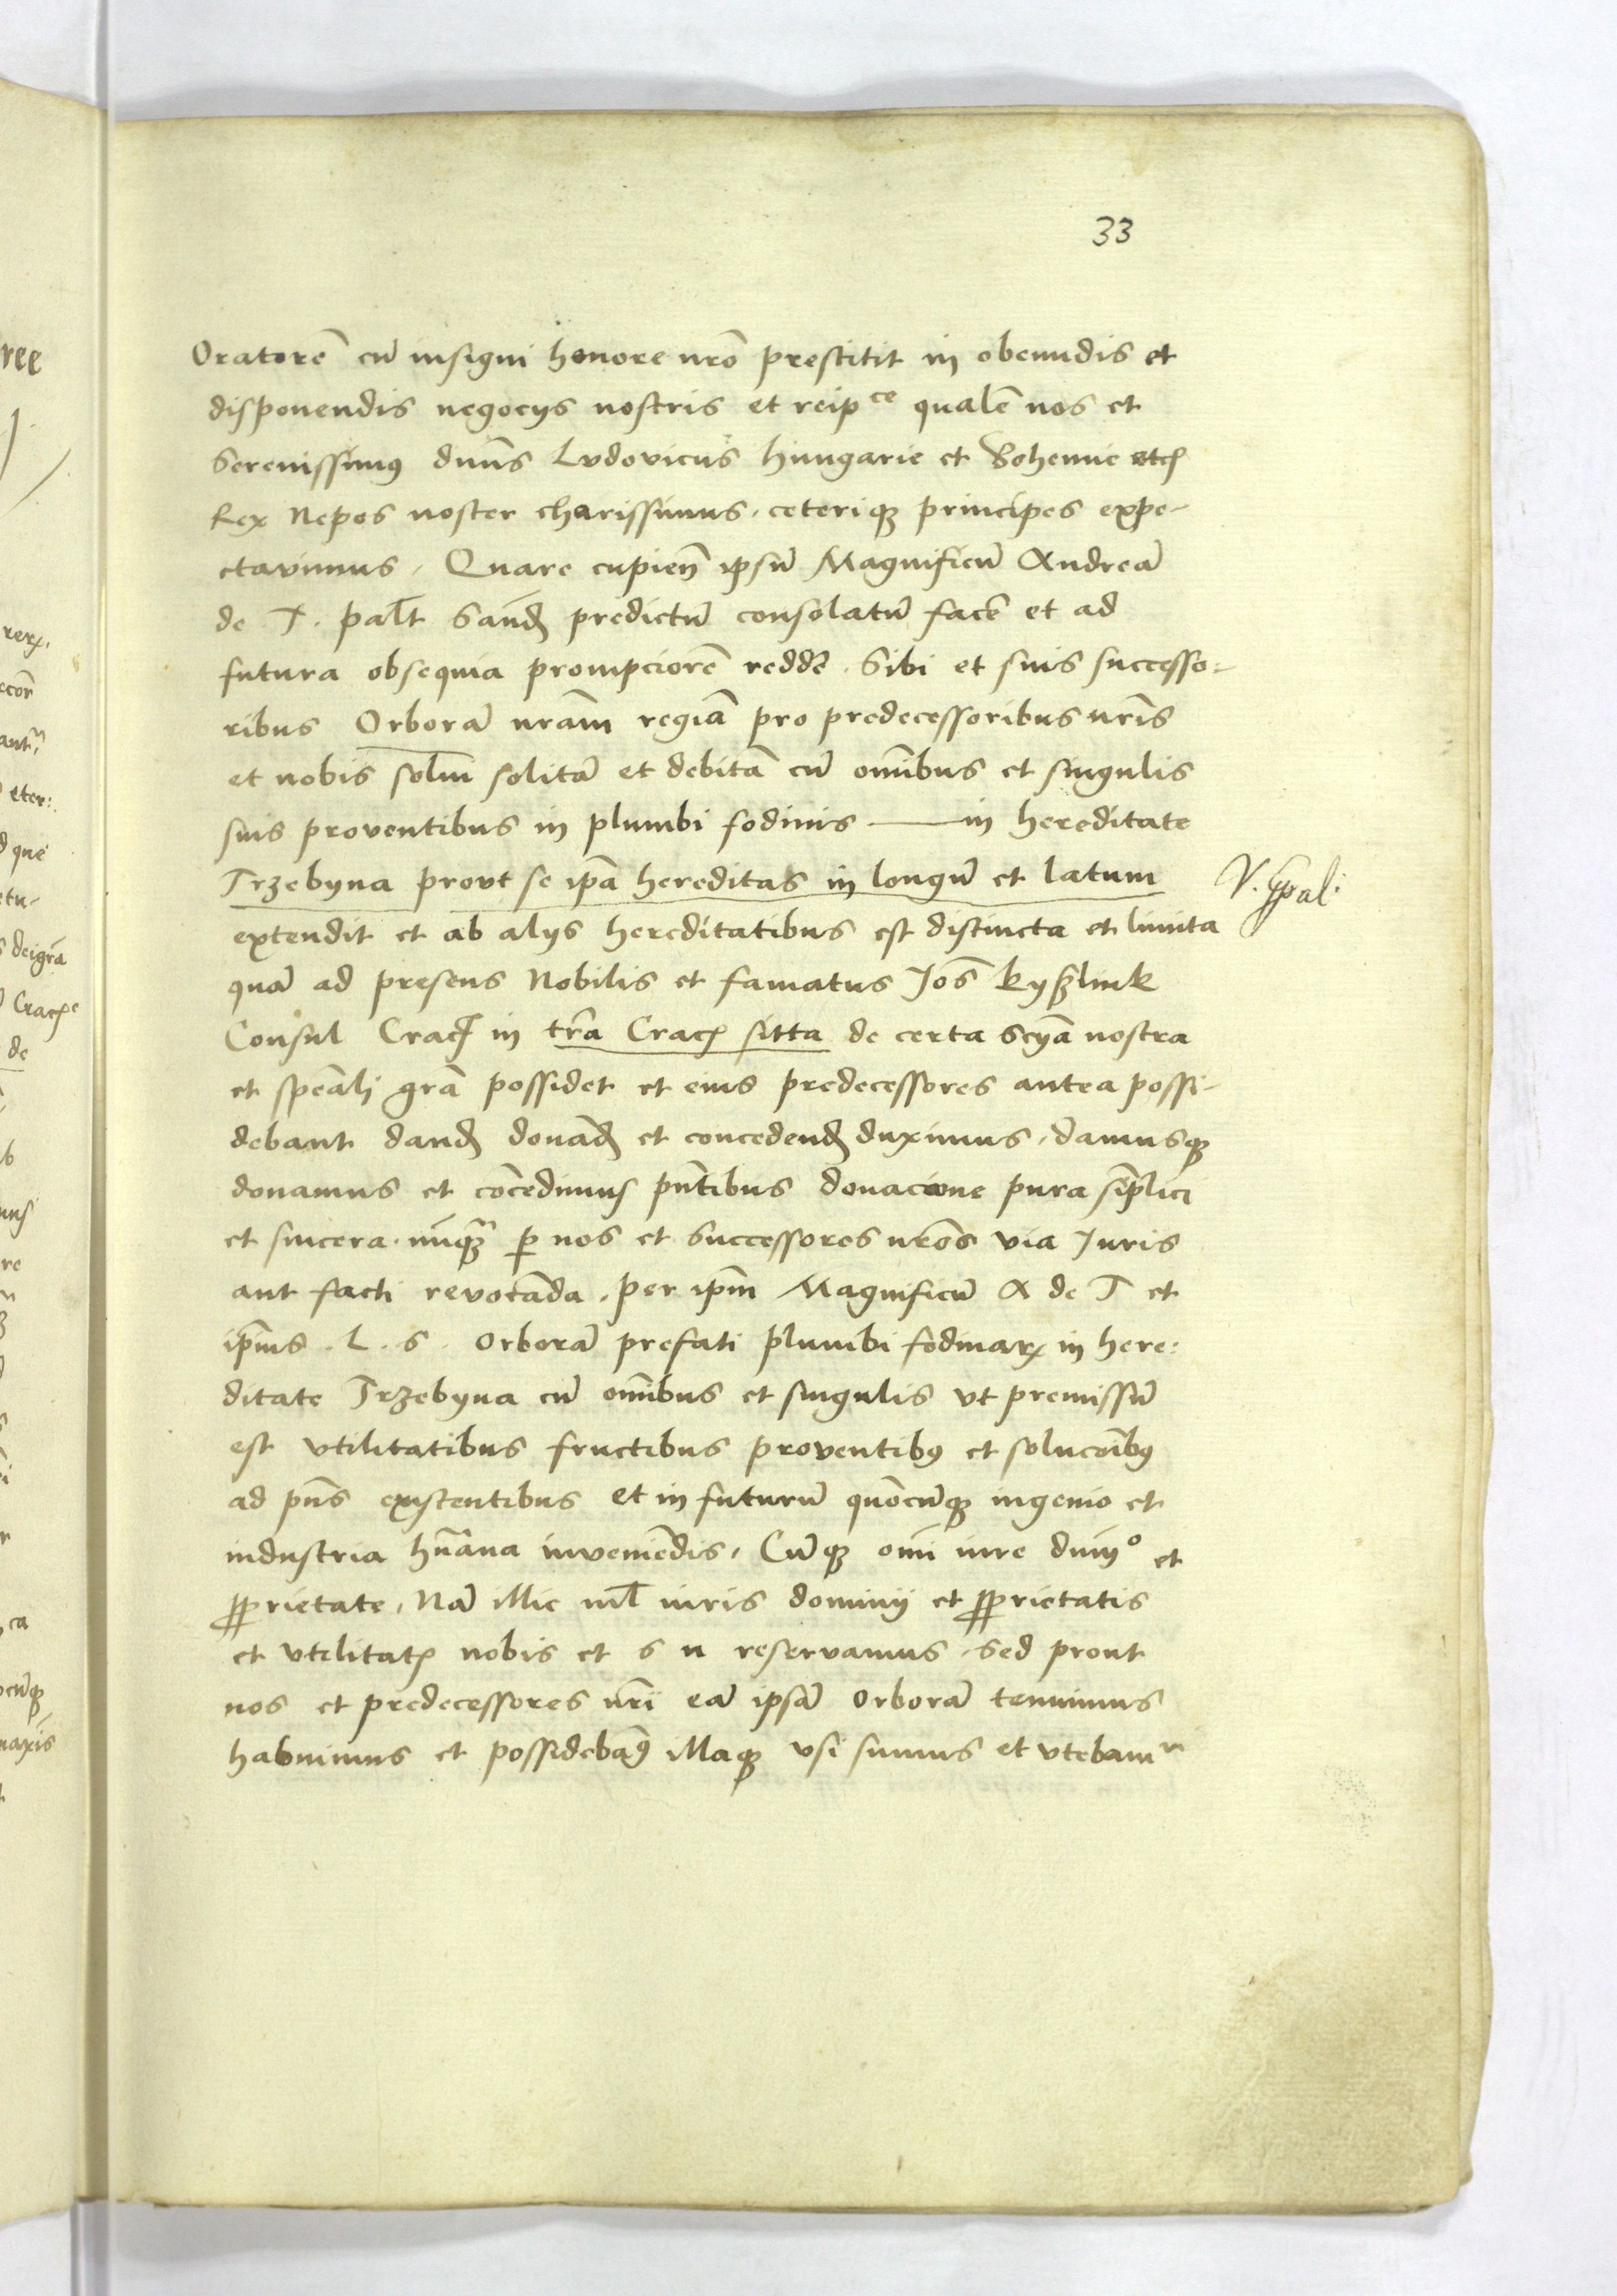 33
Oratorē cū insigni honore nrō prestitit in obeundis et
disponendis negocys nostris et reipce qualē nos et
Serenissimꝰ dnūs Ludovicus hungarie et Bohemie etcꝭ
Rex Nepos noster charissimus, ceteriqꝫ principes expe-
ctavimus, Quare cupieñ ipsū Magnificū Andreā
de T. palt Sanđ predictū consolatū facē et ad
futura obsequia prompciorē reddē. Sibi et suis successo-
ribus Orborā nrām regiā pro predecessoribus nrīs
et nobis solm̄ solitā et debitā cū om̄ibus et singulis
suis proventibus in plumbi fodinis — in hereditate
Trzebyna provt se ip̄a hereditas in longū et latum
extendit et ab alys hereditatibus est distincta et limita
quā ad presens Nobilis et famatus Joēs kyszlink
Consul Cracꝭ in trā Cracꝭ sitta de certa scyā nostra
et speāli grā possidet et eius predecessores antea possi-
debant danđ donađ et concedenđ duximus, damusqꝫ
donamus et cōcedimus pn̄tibus donacione pura sīplici
et sincera nūqꝫ ꝑ nos et successores nrōs via Juris
aut facti revocāda, per ipm̄ Magnificū A de T et
ip̄ius . L. S. Orborā prefati plumbi fodinarꝝ in here:
ditate Trzebyna cū om̄ibus et singulis vt premissū
est vtilitatibus fructibus proventibꝰ et soluciōibꝰ
ad pn̄s existentibus et in futurū quōcūqꝫ ingenio et
industria hūana inveniēdis, Cūqꝫ om̄i iure dnīo et
ꝓprietate, Nā illic nil̄ iuris dominij et ꝓprietatis
et vtilitatꝭ nobis et s n reservamus, Sed prout
nos et predecessores nrī eā ipsā Orborā tenuimus
habuimus et possidebāꝰ illaqꝫ vsi sumus et vtebamr